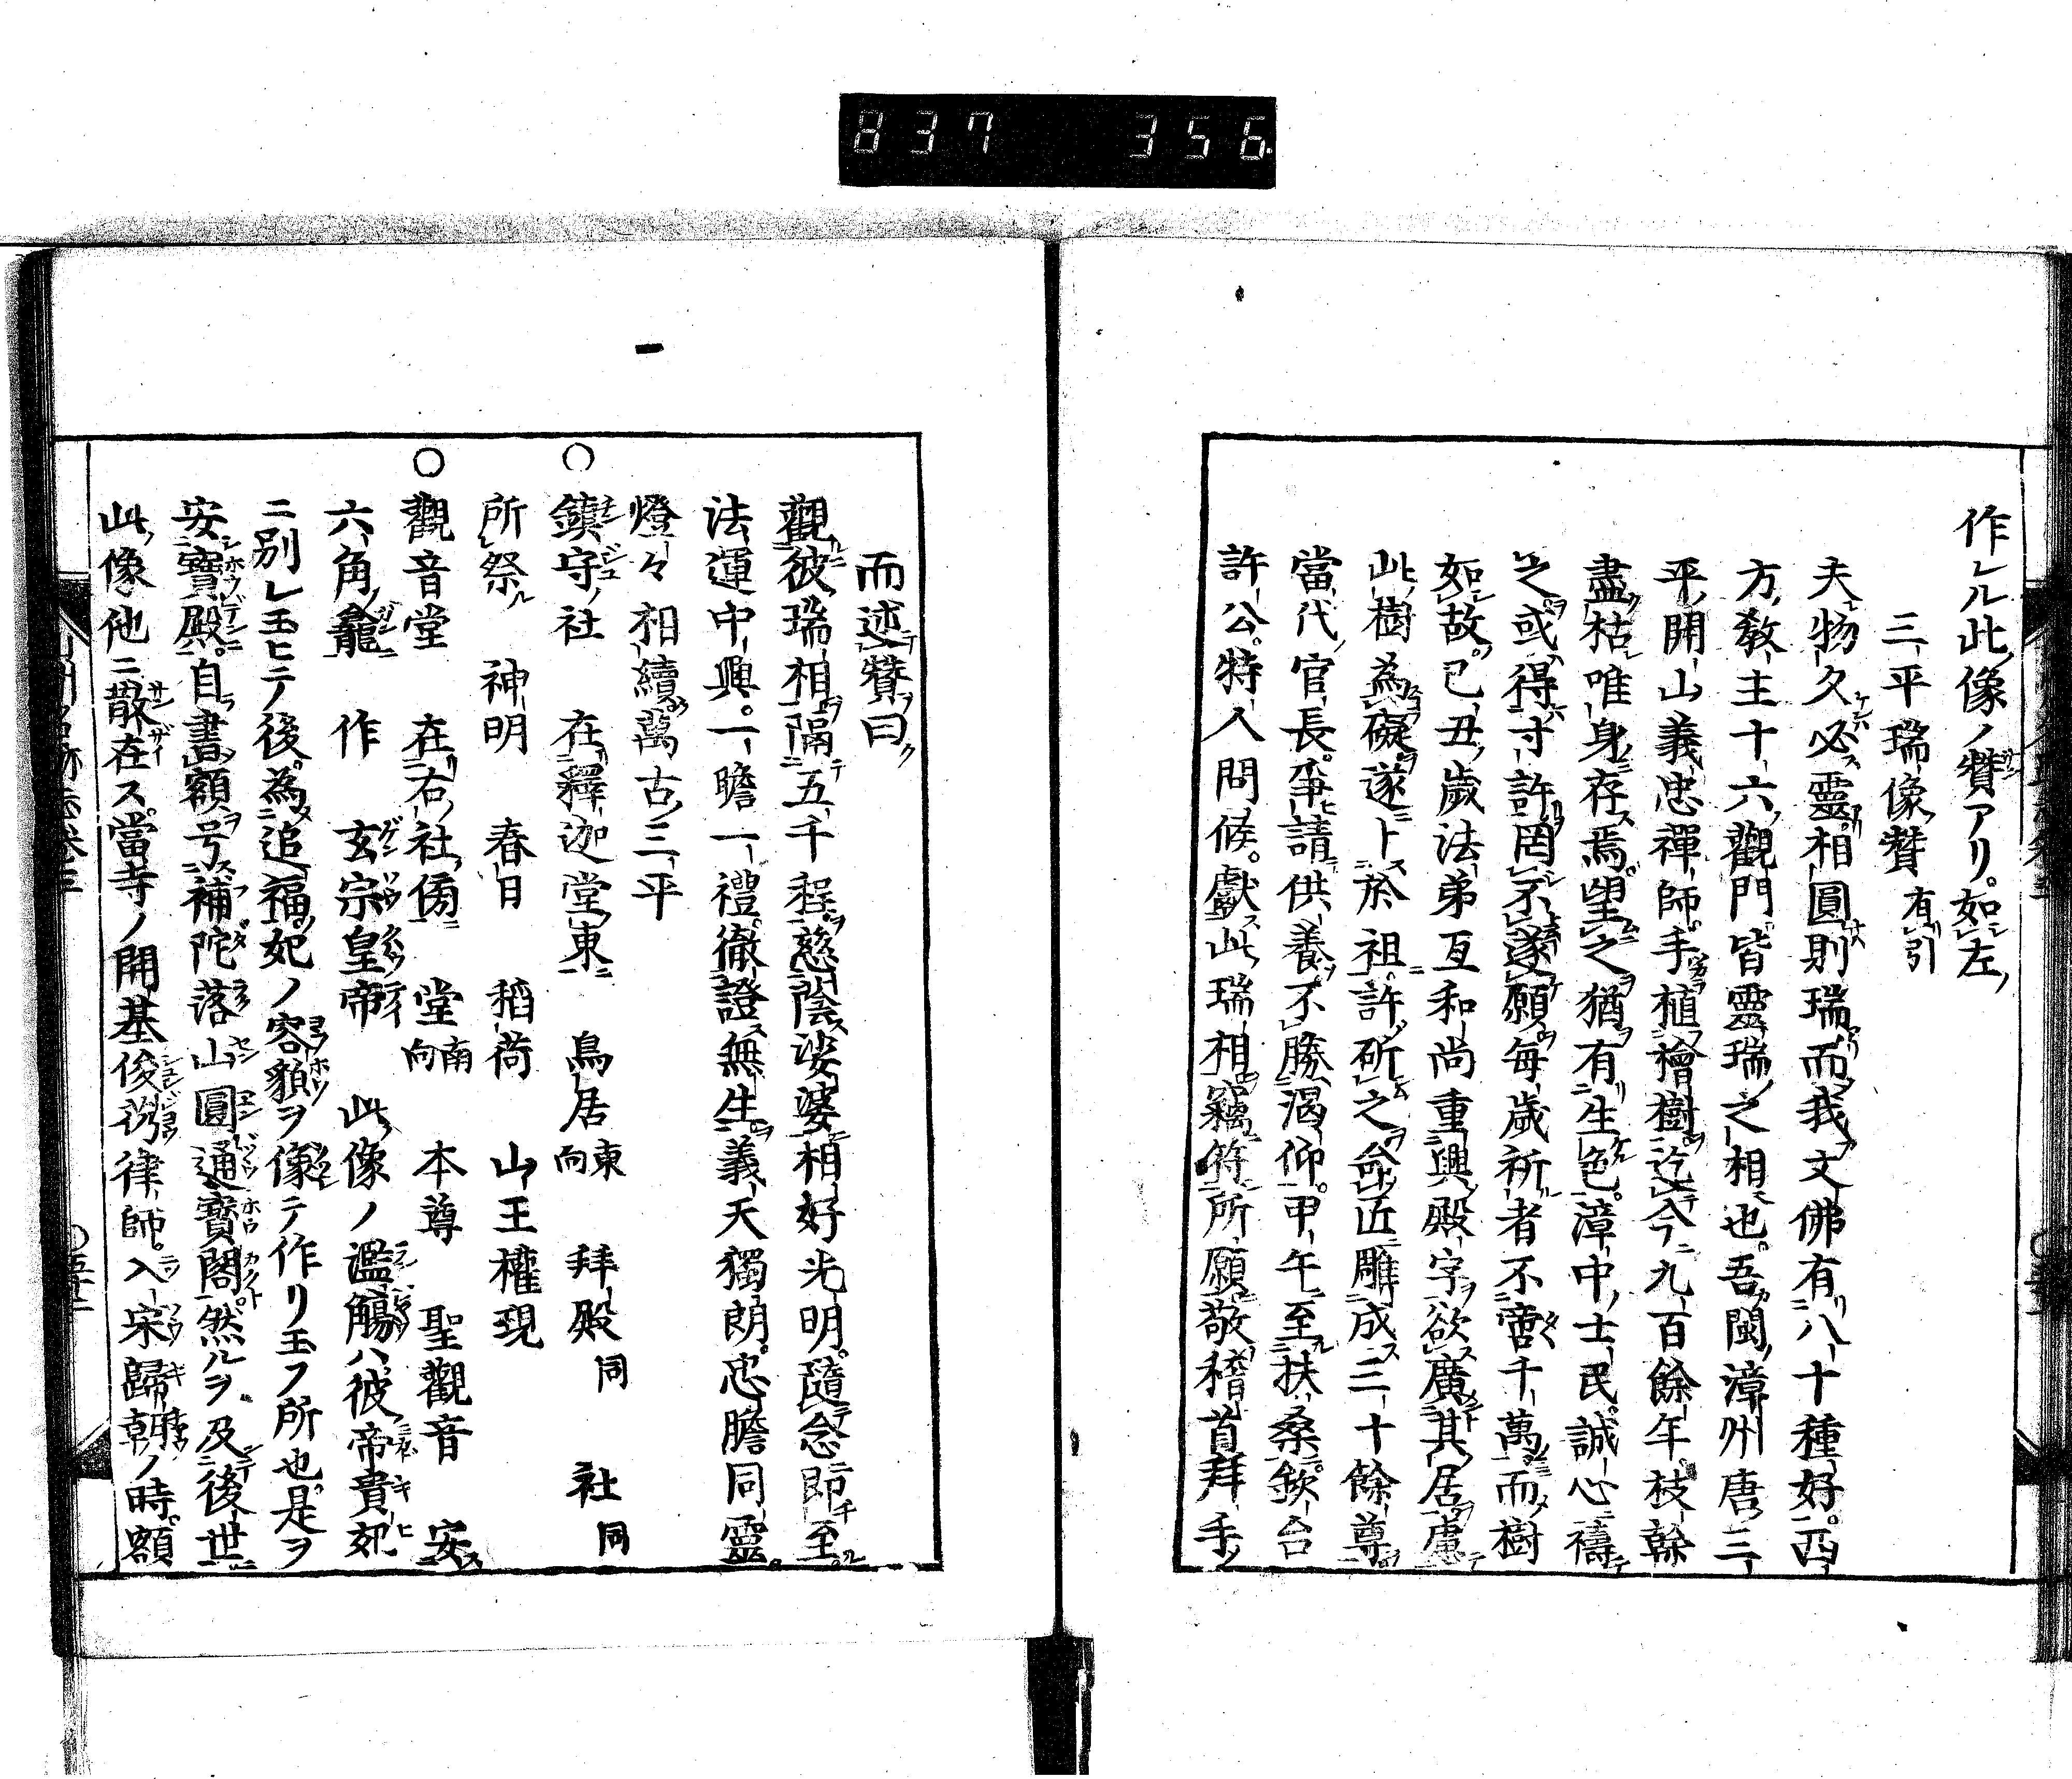 837 356
作レル此像ノ贊アリ。如左
三平瑞像贊 有引
夫物久必靈。相圓則瑞。而我文佛有八十種好。西
方教主十六觀門皆靈瑞之相也。吾閩漳州唐三
平開山義忠禪師。手植檜樹迄今九百餘年。枝幹
盡枯唯身存焉。望之猶有生色。漳中士民誠心禱
之或得寸許。罔不遂願。每歲祈者不啻千萬而樹
如故。已丑歲法弟亙和尚重興殿宇欲廣其居慮
此樹為礙。遂卜於祖。許斫之命匠雕成三十餘尊
當代官長。爭請供養。不勝渴仰。甲午至扶桑。欽台
許公。特入問候。獻此瑞相竊符所願敬稽首拜手
而述贊曰
觀彼瑞相隔五千程。慈陰娑婆相好光明。隨念即至。
法運中興。一瞻一禮。徹證無生。義天獨朗。忠膽同靈。
燈々相續。萬古三平
○鎮守社 在釋迦堂東 鳥居東向 拜殿同 社同
所祭 神明 春日 稻荷 山王權現
○觀音堂 在右社傍 堂南向 本尊 聖觀音 安
六角龕 作 玄宗皇帝 此像ノ濫觴ハ彼帝貴妃
ニ別レ玉ヒテノ後。為追福。妃ノ容貌ヲ像テ作リ玉フ所也。是ヲ
安寶殿。自書額号補陀落山圓通寶閣。然ルヲ及後世
此像他ニ散在ス。當寺ノ開基俊芿律師。入宋歸朝ノ時。額